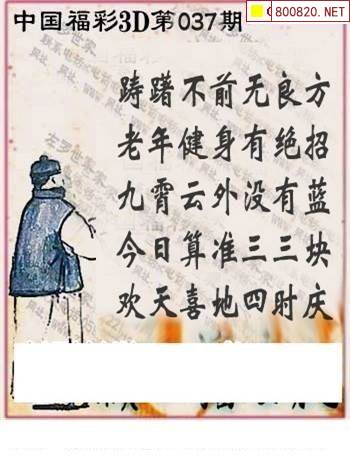 中国福彩3D第037期
800820.NET
踌躇不前无良方
老年健身有绝招
九霄云外没有蓝
今日算准三三块
欢天喜地四时庆